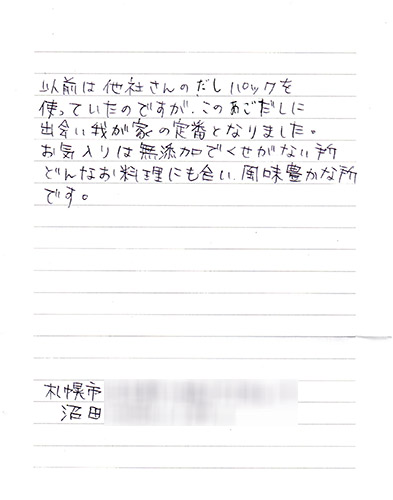 以前は他社さんのだしパックを
使っていたのですが、このあごだしに
出会い我が家の定番となりました。
お気入りは無添加でくせがない所
どんなお料理にも合い、風味豊かな所
です。
札幌市
沼田